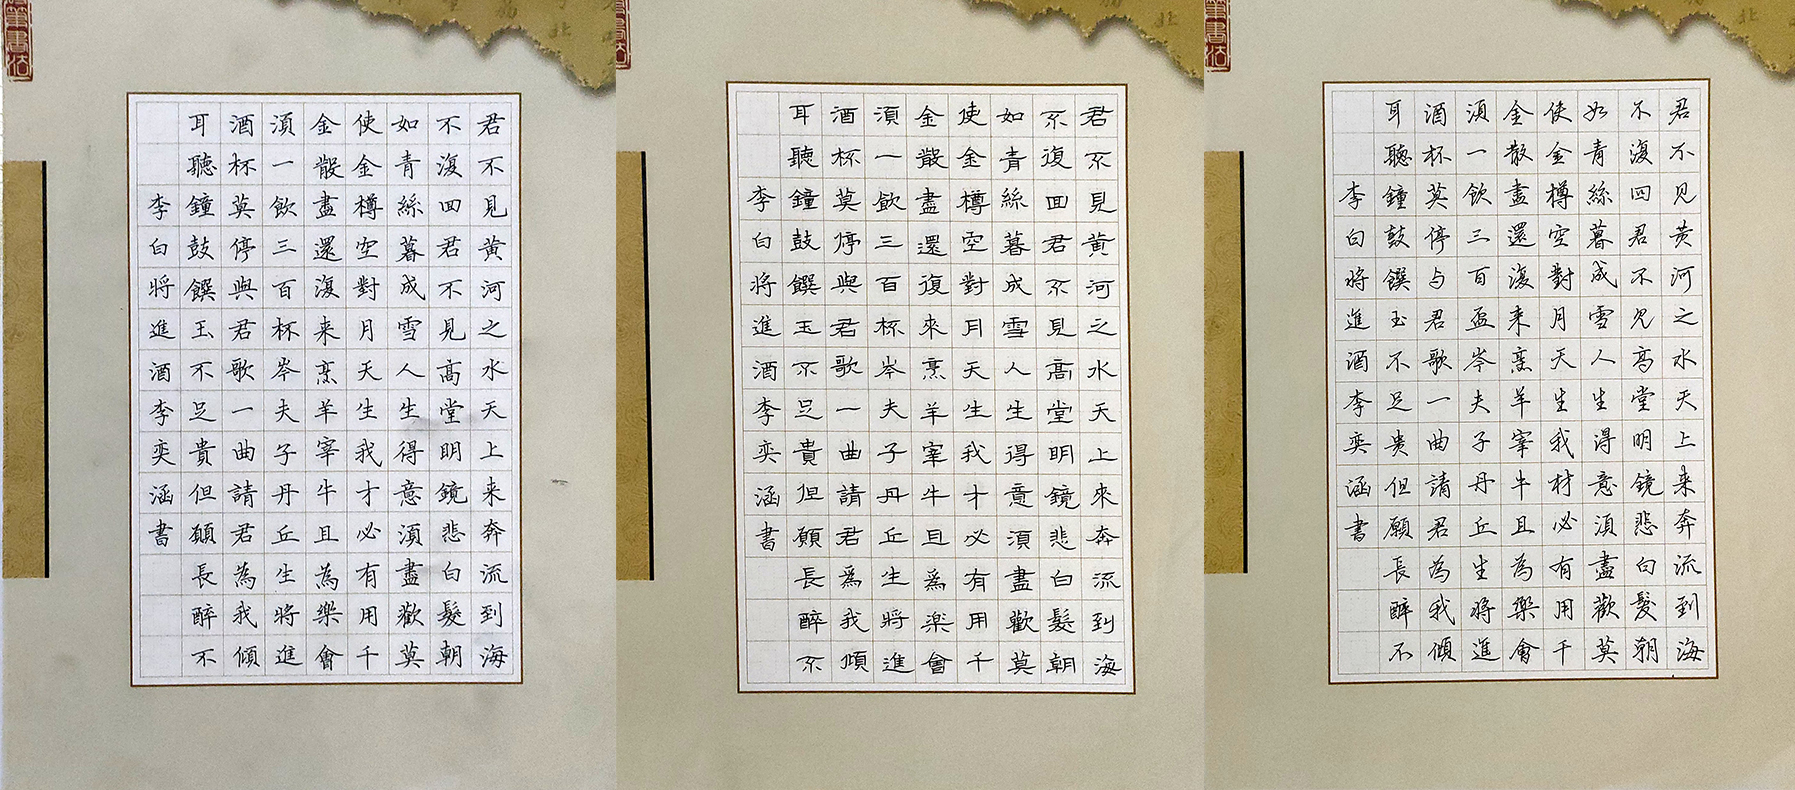 筆書法
君不見黄河之水天上来奔流到海
不復囬君不見高堂明鏡悲白髮朝
如青絲暮成雪人生得意須盡歡莫
使金樽空對月天生我才必有用千
金散盡還復来烹羊宰牛且為樂會
須一飲三百杯岑夫子丹丘生將進
酒杯莫停與君歌一曲請君為我傾
耳聽鐘鼓饌玉不足貴但願長醉不
李白將進酒李奕涵書
君不見黄河之水天上來奔流到海
不復囬君不見高堂明鏡悲白髮朝
如青絲暮成雪人生得意須盡歡莫
使金樽空對月天生我才必有用千
金散盡還復來烹羊宰牛且爲楽會
須一飲三百杯岑夫子丹丘生將進
酒杯莫停與君歌一曲請君爲我傾
耳聽鐘鼓饌玉不足貴但願長醉不
李白將進酒李奕涵書
筆書法
君不見黄河之水天上来奔流到海
不復回君不見高堂明鏡悲白髮朝
如青絲暮成雪人生得意須盡歡莫
使金樽空對月天生我材必有用千
金散盡還復来烹羊宰牛且為樂會
須一飲三百盃岑夫子丹丘生將進
酒杯莫停与君歌一曲請君為我傾
耳聽鐘鼓饌玉不足貴但願長醉不
李白將進酒李奕涵書